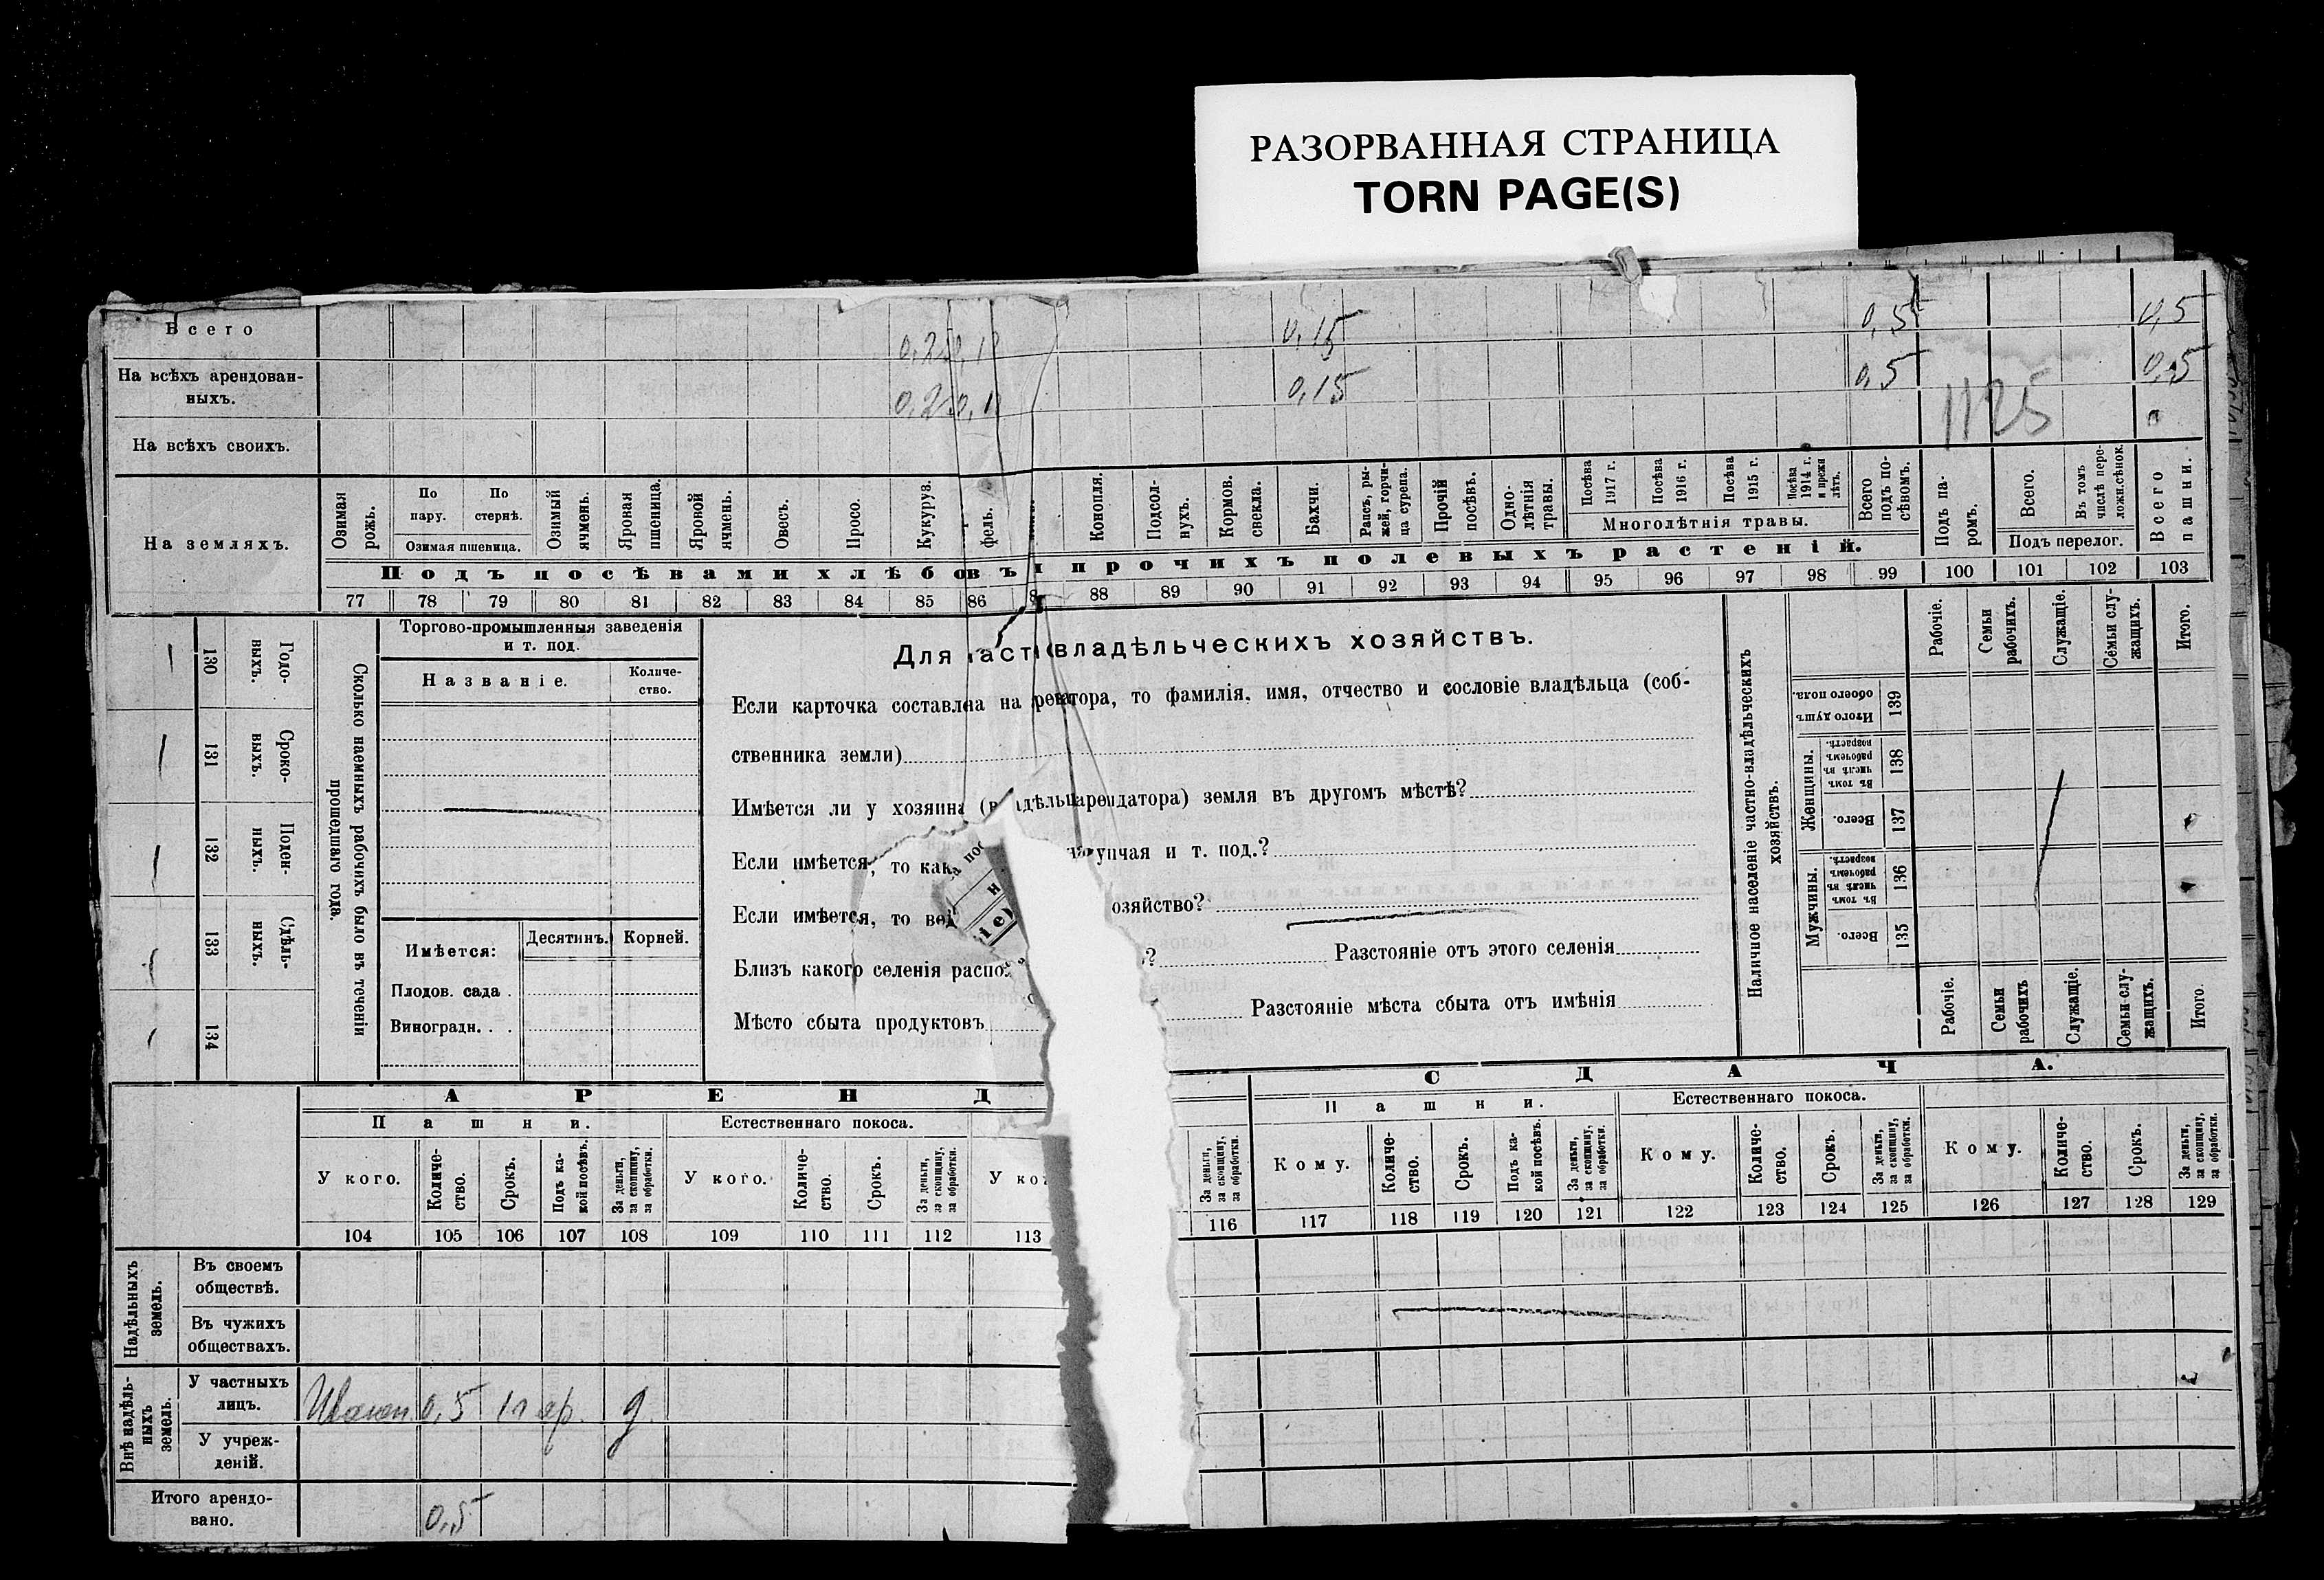 РАЗОРВАННАЯ СТРАНИЦА
TORN PAGE(S)
Всего 0,15 0,5 0,5
На всѣхъ арендован-
ныхъ. 0,15 0,5 0,5
1125
На всѣхъ своихъ.
На земляхъ.
Озимая рожь.
По пару.
По стернѣ.
Озимая пшеница.
Озимый ячмень.
Яровая пшеница.
Яровой ячмень.
Овесъ.
Просо.
Кукуруз.
фель.
Конопля.
Подсол-
нухъ.
Кормов. свекла.
Бахчи.
Рапсъ, ры-
жей, горчи-
ца сурепа.
Прочій посѣвъ.
Одно-
лѣтнія травы.
Посѣва 1917 г.
Посѣва 1916 г.
Посѣва 1915 г.
Посѣва 1914 г. и прежн лѣтъ.
Многолѣтнія травы.
Всего подъ по-
сѣвомъ.
Подъ па-
ромъ.
Всего.
Въ томъ числѣ пере-
ложн.сѣнок.
Подъ перелог.
Всего пашни.
Подъ посѣвами хлѣбовъ прочихъ полевыхъ растеній.
77 78 79 80 81 82 83 84 85 86 8 88 89 90 91 92 93 94 95 96 97 98 99 100 101 102 103
130 Годо-
ныхъ.
131 Сроко-
выхъ.
132 Поден-
ныхъ.
133 Сдѣль-
ныхъ.
134
Сколько наемныхъ рабочихъ было въ теченіи
прошедшаго года.
Торгово-промышленныя заведенія
и т. под.
Названіе.
Количе-
ство.
Имѣется:
Десятинъ. Корней.
Плодов. сада .
Виноградн. . .
Для аст владѣльческихъ хозяйствъ.
Если карточка составлена на рентора, то фамилія, имя, отчество и сословіе владѣльца (соб-
ственника земли)
Имѣется ли у хозяина (в адѣльц арендатора) земля въ другомъ мѣстѣ?
Если имѣется, то как купчая и т. под.?
Если имѣется, то вед озяйство?
Близъ какого селенія распо ? Разстояніе отъ этого селенія
Мѣсто сбыта продуктовъ Разстояніе мѣста сбыта отъ имѣнія
Наличное населеніе частно-владѣльческихъ
хозяйствъ.
Рабочіе.
Семьи рабочихъ.
Служащіе.
Семьи слу-
жащихъ.
Итого.
Итого душъ обоего пола. 139
Женщины.
Въ томъ числѣ въ рабочемъ возрастѣ. 138
Всего. 137
Мужчины.
Въ томъ числѣ въ рабочемъ возрастѣ. 136
Всего. 135
Рабочіе.
Семьи рабочихъ
Служащіе.
Семьи слу-
жащихъ.
Итого.
АРЕНД
Пашни. Естественнаго покоса.
У кого.
Количе-
ство.
Срокъ.
Подъ ка-
кой посѣвъ.
За деньги, за скопщину, за обработки.
У кого.
Количе-
ство.
Срокъ.
За деньги, за скопщину, за обработки.
У ког
104 105 106 107 108 109 110 111 112 113
СДАЧА.
Пашни. Естественнаго покоса.
За деньги, за скопщину, за обработки.
Кому.
Количе-
ство.
Срокъ.
Подъ ка-
кой посѣвъ.
За деньги, за скопщину, за обработки.
Кому.
Количе-
ство.
Срокъ.
За деньги, за скопщину, за обработки.
Кому.
Количе-
ство.
Срокъ.
За деньги, за скопщину, за обработки.
116 117 118 119 120 121 122 123 124 125 126 127 128 129
Надѣльныхъ земель.
Въ своемъ
обществѣ.
Въ чужихъ
обществахъ.
Внѣ надѣль-
ныхъ земель.
У частныхъ
лицъ. 0,5 1 г яр. д
У учреж-
деній.
Итого арендо-
вано. 0,5